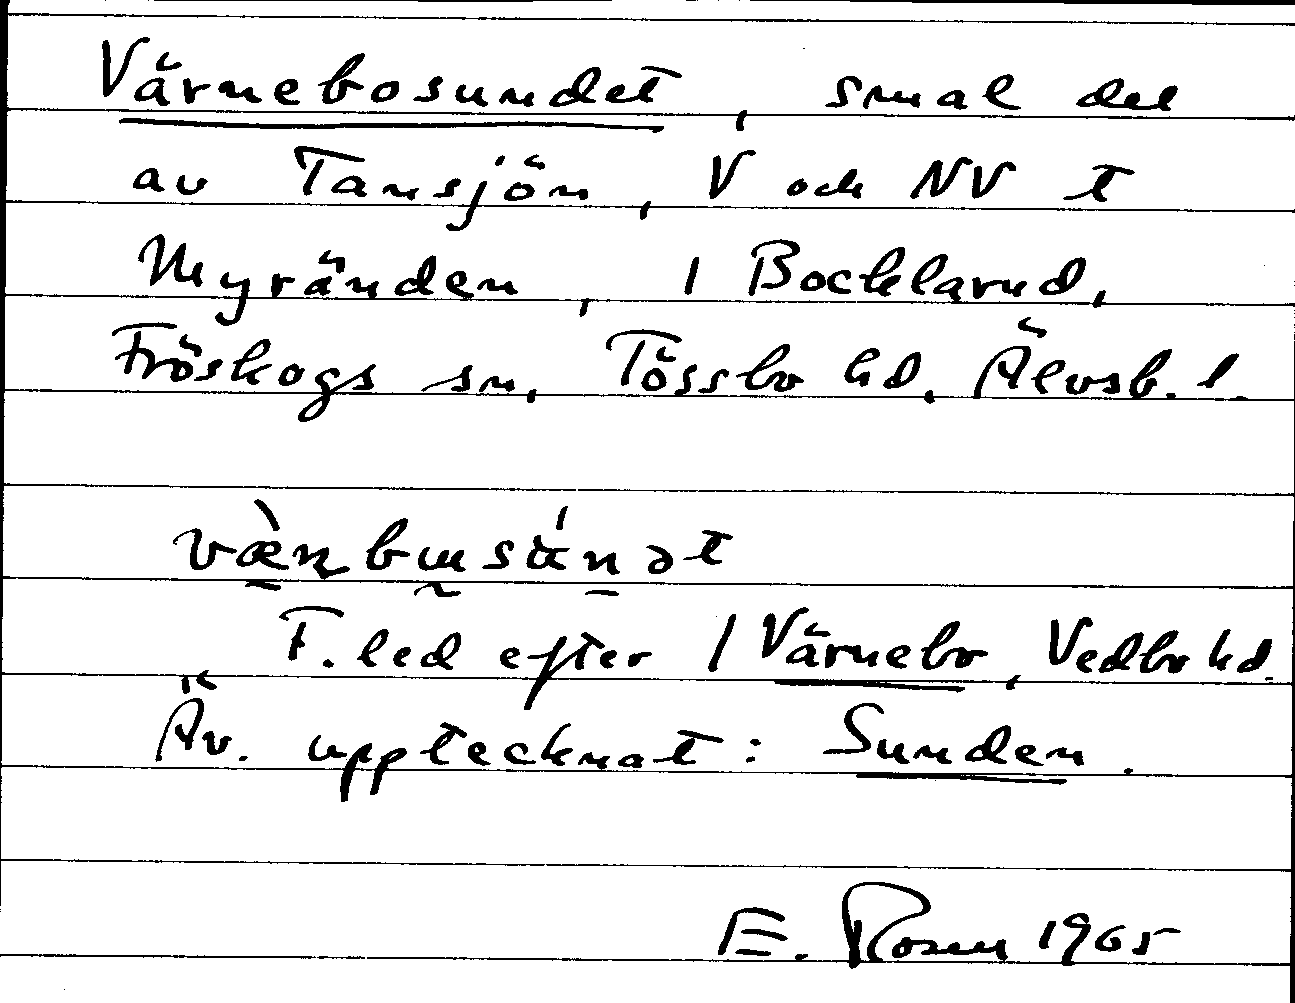 Värnebosundet, smal del
av Tansjön, V och NV t
Myränden, / Bocklarud,
Fröskogs sn, Tössbo hd, Älvsb. l.
væ̀n̠bɯsán̠ət
F. led efter / Värnebo, Vedbo hd.
Äv. upptecknat: Sunden.
E. Rosen 1965